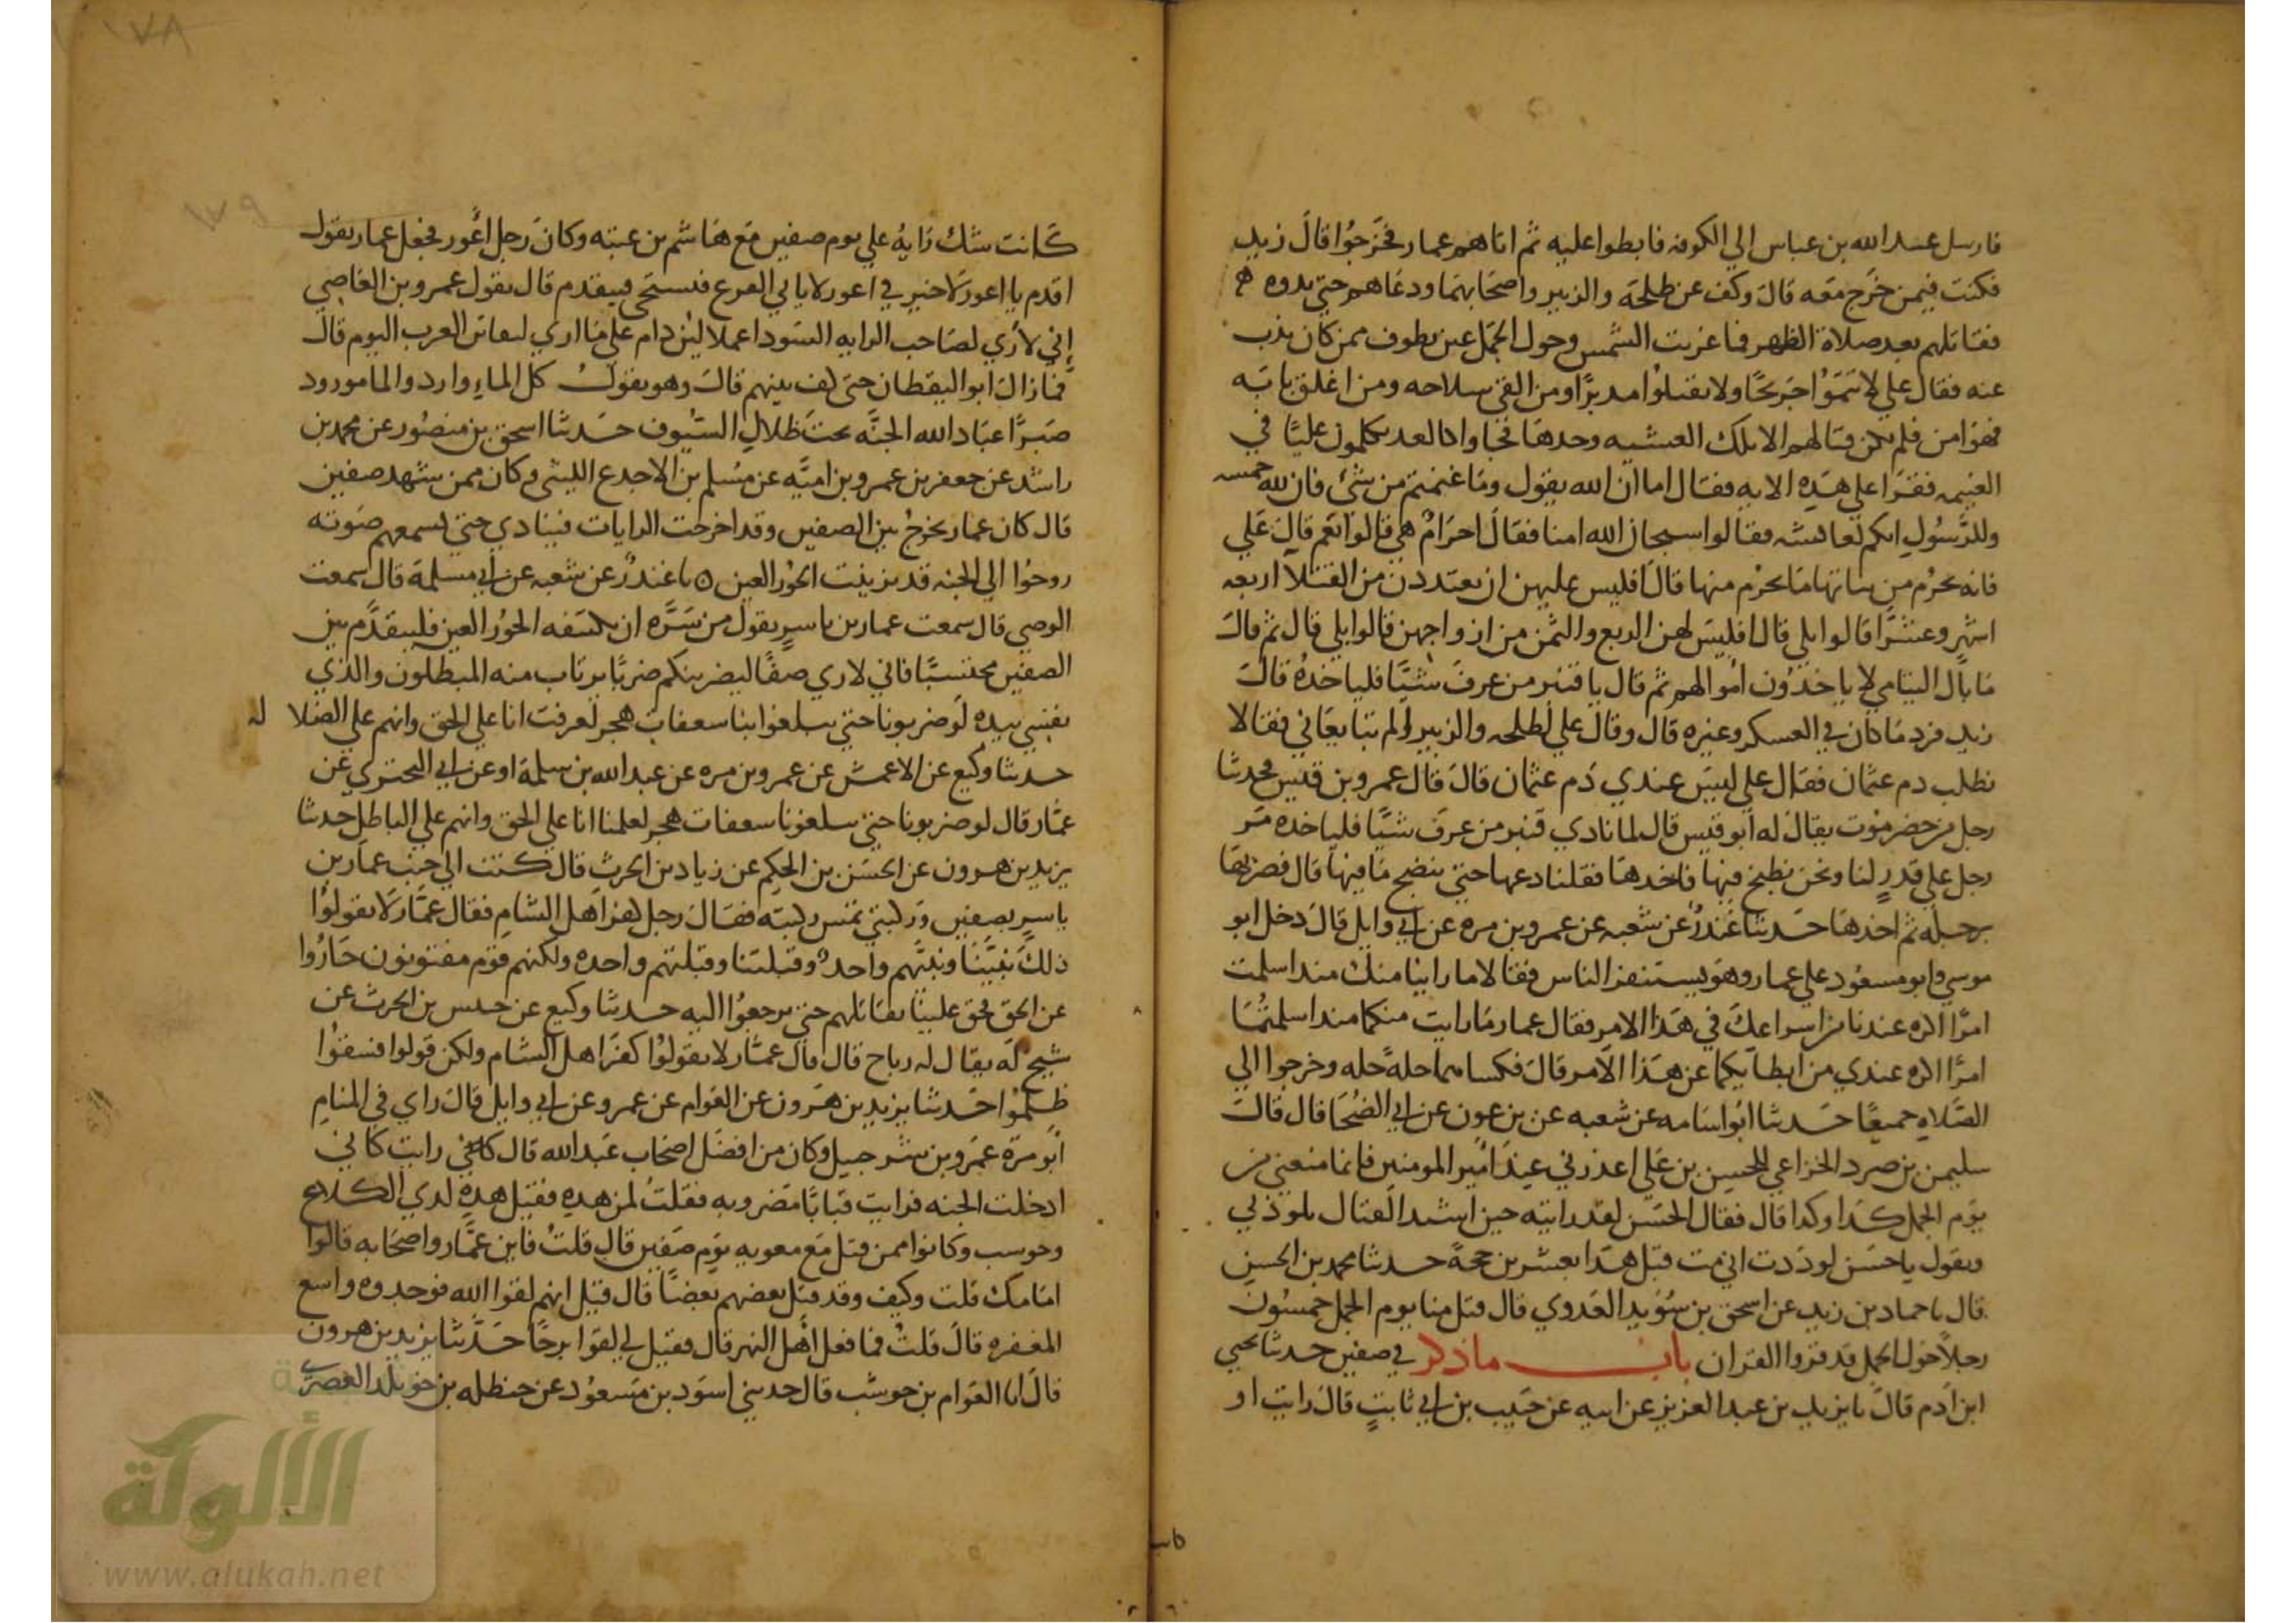 فارسل عبد الله بن عباس الي الكوفه فابطوا عليه ثم اتاهم عمار فخرجوا قال زيد
فكنت فيمن خرج معه قال وكف عن طلحة والزبير واصحابهما ودعاهم حتي بدوه هم
فقاتلهم بعد صلاة الظهر فما غربت الشمس وحول الجمل عين تطوف ممن كان يذب
عنه فقال علي لا تتموا جريحا ولا تقتلوا مدبرا ومن القي سلاحه ومن اغلق بابه
فهو امن فلم يكن قتالهم الا تلك العشيه وحدها فجاوا بالغد يكلمون عليا في
الغنيمه فقرا علي هذه الايه فقال اما ان الله يقول وما غنمتم من شي فان لله خمسه
وللرسول ايكم لعائشه فقالوا سبحان الله امنا فقال احرام هي قالوا نعم قال علي
فانه يحرم من بناتها ما يحرم منها قال افليس عليهن ان يعتددن من القتلا اربعه
اشهر وعشرا قالوا بلي قال افليس لهن الربع والثمن من ازواجهن قالوا بلي قال ثم قال
ما بال اليتامي لا ياخذون اموالهم ثم قال يا قنبر من عرف شيا فلياخذه قال
زيد فرد ما كان في العسكر وغيره قال وقال علي لطلحه والزبير الم تبايعاني فقالا
نطلب دم عثمان فقال علي ليس عندي دم عثمان قال قال عمرو بن قيس فحدثنا
رجل من حضرموت يقال له ابو قيس قال لما نادي قنبر من عرف شيا فلياخذه مر
رجل علي قدر لنا ونحن نطبخ فيها فاخذها فقلنا دعها حتي ينضج ما فيها قال فضربها
برجله ثم اخذها حدثنا غندر عن شعبه عن عمرو بن مره عن ابي وايل قال دخل ابو
موسي وابو مسعود علي عمار وهو يستنفر الناس فقالا ما راينا منك منذ اسلمت
امرا اكره عندنا من اسراعك في هذا الامر فقال عمار ما رايت منكما منذ اسلمتما
امرا اكره عندي من ابطايكما عن هذا الامر قال فكساهما حلة حله وخرجوا الي
الصلاه جميعا حدثنا ابو اسامه عن شعبه عن بن عون عن ابي الضحا قال قال
سليمن بن صرد الخزاعي للحسن بن علي اعذرني عند امير المومنين فانما منعني من
يوم الجمل كذا وكذا قال فقال الحسن لقد رايته حين اشتد القتال يلوذ بي
ويقول يا حسن لوددت اني مت قبل هذا بعشرين حجة حدثنا محمد بن الحسن
قال نا حماد بن زيد عن اسحق بن سويد العدوي قال قتل منا يوم الجمل خمسون
رجلا حول الجمل قد قروا القران باب ما ذكر في صفين حدثنا يحيي
ابن ادم قال نا يزيد بن عبد العزيز عن ابيه عن حبيب بن ابي ثابت قال رايت او
كانت
كانت سك رايه علي يوم صفين مع هاشم بن عتبه وكان رجل اعور فجعل عمار يقول
اقدم يا اعور لا خير في اعور لا ياتي الفزع فيستحي فيتقدم قال يقول عمرو بن العاصي
إني لاري لصاحب الرايه السودا عملا لين دام علي ما اري لتفانن العرب اليوم قال
فما زال ابو اليقظان حتي لف بينهم قال وهو يقول كل الماء وارد والما مورود
صبرا عباد الله الجنه تحت ظلال السيوف حدثنا اسحق بن منصور عن محمد بن
راشد عن جعفر بن عمرو بن اميه عن مسلم بن الاجدع الليثي وكان ممن شهد صفين
قال كان عمار يخرج بين الصفين وقد اخرجت الرايات فينادي حتي يسمعهم صوته
روحوا الي الجنه قد تزينت الحور العين ه نا غندر عن شعبه عن ابي مسلمة قال سمعت
الوصي قال سمعت عمار بن ياسر يقول من سره ان تكتنفه الحور العين فليتقدم بين
الصفين محتسبا فاني لاري صفا ليضربنكم ضربا يرتاب منه المبطلون والذي
نفسي بيده لو ضربونا حتي يبلغوا بنا سعفات هجر لعرفت انا علي الحق وانهم علي الضلا له
حدثنا وكيع عن الاعمش عن عمرو بن مره عن عبد الله بن سلمة او عن ابي البختري عن
عمار قال لو ضربونا حتي يبلغونا سعفات هجر لعلمنا انا علي الحق وانهم علي الباطل حدثنا
يزيد بن هرون عن الحسن بن الحكم عن زياد بن الحرث قال كنت الي جنب عمار بن
ياسر بصفين وركبتي تمس ركبته فقال رجل كفر اهل الشام فقال عمار لا تقولوا
ذلك نبينا ونبيهم واحد وقبلتنا وقبلتهم واحده ولكنهم قوم مفتونون حاروا
عن الحق فحق علينا نقاتلهم حتي يرجعوا اليه حدثنا وكيع عن حسن بن الحرث عن
شيخ له يقال له رباح قال قال عمار لا تقولوا كفر اهل الشام ولكن قولوا فسقوا
ظلموا حدثنا يزيد بن هرون عن العوام عن عمرو عن ابي وايل قال راي في المنام
ابو مرة عمرو بن شرحبيل وكان من افضل اصحاب عبد الله قال رايت كاني
ادخلت الجنه فرايت قبابا مضروبه فقلت لمن هذه فقيل هذه لذي الكلاع
وحوسب وكانوا ممن قتل مع معويه يوم صفين قال قلت فاين عمار واصحابه قالوا
امامك قلت وكيف وقد قتل بعضهم بعضا قال قيل انهم لقوا الله فوجدوه واسع
المغفره قال قلت فما فعل اهل النهر قال فقيل لي لقوا برحا حدثنا يزيد بن هرون
قال انا العوام بن حوشب قال حدثني اسود بن مسعود عن حنظله بن خويلد العصري
١٧٨
١٧٩
الألوكة
www.alukah.net